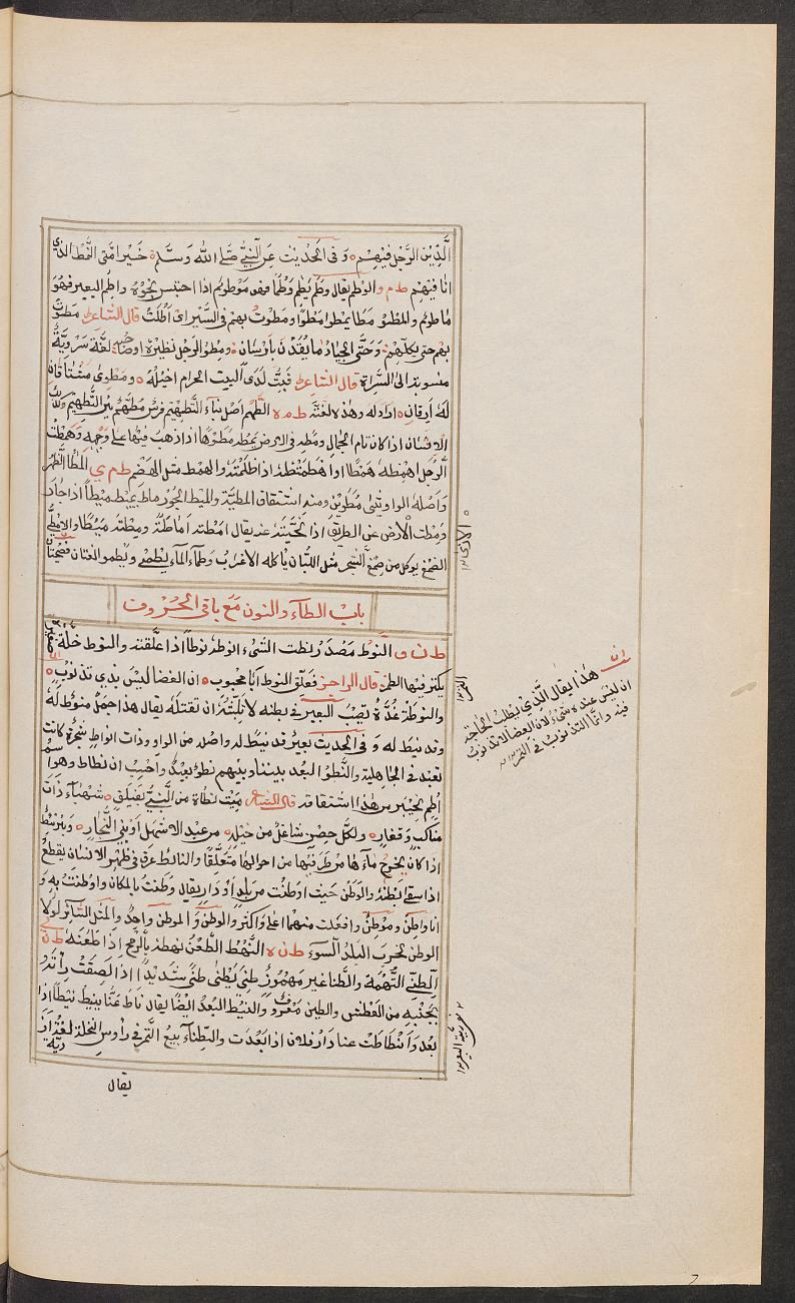 الَّذين الرَّجل فيهم ٥ وَ في الحديث عَن النبيّ صَلى الله وَسلّم ٥ خَير امّتي النَّمط الذي
انا فيهم ط م و الوطم يقال وطم يُطِم وَطْمًا فهو مَوْطوم اذا احتبس نجوه واطم البعير فهو
ماطوم والمَطو مَطا يمطوا مطوًا ومطوتُ بهم في السَّير اي اَطَلْتُ قال الشاعر مَطوتُ
بهم حتى يكلّ وَحتّى الجياد ما يقدن بارسان ٥ ومِطوُ الرجل نظيره اوصاحبه لغة سَرْويّة
منسوبة الى السَّراة قال الشاعر فبتُّ لَدى البيت الحرام اخيله ٥ ومَطواى مشتاقان
لَهْ ارقان ٥ اراد له وهذه لغته ط م ه الطّهم اصل بناء التَّطهيم فرس مطهّم بيّن التَّطهيم وكذلك
الانسان اذا كان تام الجمال ومَطه في الارض يمطه مَطوهًا اذا ذهبَ فيها على وَجهه وَهمطت
الرّجل اهمطه هَمْطًا واهتمطته اذا ظلمته والهمط مثل الهضم ط م ي المطا الظهر
وَاصله الواو وتثنى مطوين ومنه اشتقاق المطيّة والميط الجور ماط يميط ميطًا اذا جارَ
وَمطت الاذى عن الطريق اذا نحّيته عنه يقال امطته اماطة ومِطته مَيْطًا والامطيّ
الصمغ يوكل من صمغ الشجر مثل اللُّبان ياكله الاعراب وَطماء الماء يطمي ويطمو لغتان فصيحتان
باب الطاء والنون مَعَ باقي الحُروف
ط ن و النوط مَصدَر نطت الشيء انوطه نوطًا اذا علّقته والنوط جلّة صغيرة
يكنز فيها التمر قال الراجز فعَلّق النوط ابا محبوب ٥ ان الغضا ليسَ بذي تذنوب ٥
والنوطة غدّة تصيب البعير في بطنه لا تلبثه ان تقتله يقال هذا جمل منوط لهُ
وقد نيط له وَ في الحديث بعير قد نيط له واصله من الواو وذات انواط شجرة كانت
تعبد في الجاهلية والنَّطو البعد بيننا وبينهم نطو بعيد واحسب ان نطاط وهو اسم
اُطم بخيبر من هذا اشتقاقه قال الشاعر رُميت نطاة من النبيّ بفيلق ٥ شهباء ذات
مناكب وَفقار ٥ ولكلّ حصن شاغل من خيله ٥ من عبد الاشهل اوبني النّجار ٥ وبئر نيط
اذا كان يخرج ماءها من طرفيها من احوالها متعلّقًا والنائط عرق في ظهر الانسان يقطع
اذا سقي بطنه والوَطَن حيث اوطنت من بلد اَوْ دار يقال وَطنت بالمكان واوطنت به وَ
انا واطن ومُوطِن وافعلت منهما اعلى واكثر والوَطَن وَ الموطن واحد والمثل السّائر لولا
الوطن لخرب البلد السّوء ط ن ه النَّهط الطَّعن نهطه بالرمح اذا طعنه ط ن ي
الطِّنى التُّهمة والطَّنا غير مَهموز طنِيَ يُطنى طنًى شديدًا اذا لصقت رئته
بجنبه من العطش والطين معروف والنيط البعد ايضًا يقال ناط عنّا ينيط نيطًا اذا
بعد وَانتطاطت عنا دار فلان اذا بعدت والتِّطناء بيع التَّمر في رأوس النخلة لغة ازديّة
يقال
الاذى
هذا يقال الَّذي يطلب الحاجة
ان ليس عنده شيء لان الغضا لا تذنوب
فيه وانَّما التذنوب في التمر